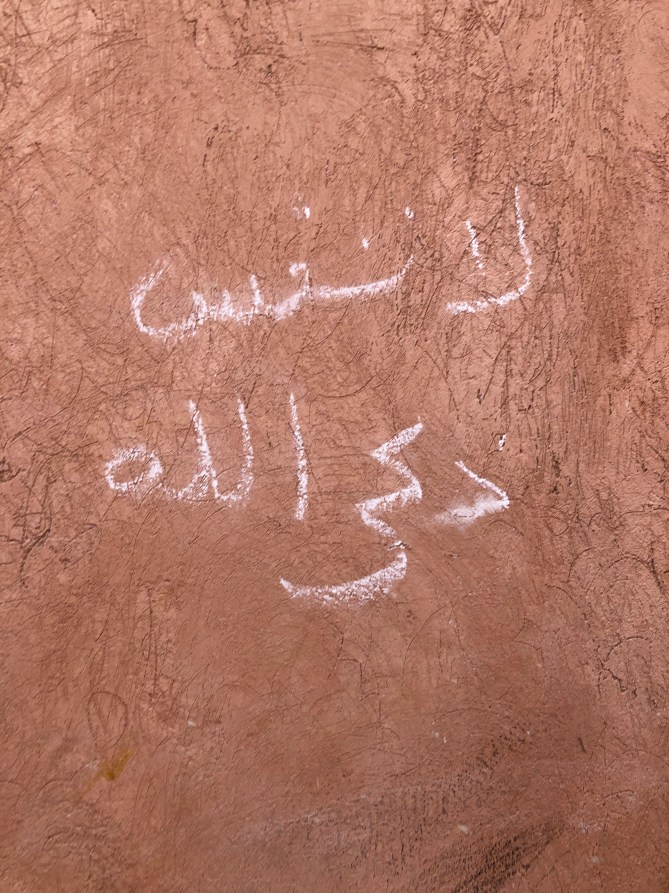 لا تنس
ذكر الله